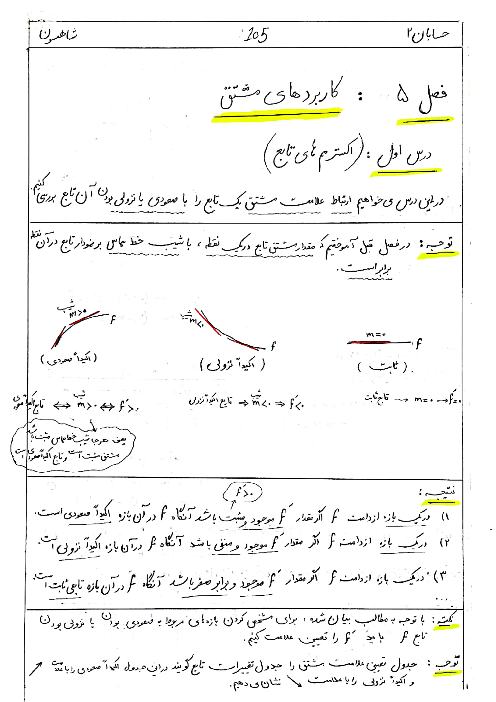 حسابان ۲ 205 شاهسون
فصل ۵ : کاربردهای مشتق
درس اول : (اکسترم های تابع)
در این درس می خواهیم ارتباط علامت مشتق یک تابع را با صعودی یا نزولی بودن آن تابع بررسی کنیم.
توجه : در فصل قبل آموختیم که مقدار مشتق تابع در یک نقطه ، با شیب خط مماس بر نمودار تابع در آن نقطه
برابر است.
شیب m>0 f
شیب m<0 f
m=0 f
(اکیداً صعودی)
(اکیداً نزولی)
(ثابت)
تابع ثابت → m=0 → f'=0
تابع اکیداً نزولی ⇒ شیب m<0 ⇒ f'<0
تابع اکیداً صعودی ⇔ شیب m>0 ⇔ f'>0
یعنی هر جا شیب خط مماس مثبت باشد
مشتق مثبت است و تابع اکیداً صعودی است
نتیجه :
f'>0
۱) در یک بازه از دامنه f اگر مقدار f' موجود و مثبت باشد آنگاه f در آن بازه اکیداً صعودی است.
۲) در یک بازه از دامنه f اگر مقدار f' موجود و منفی باشد آنگاه f در آن بازه اکیداً نزولی است.
۳) در یک بازه از دامنه f اگر مقدار f' موجود و برابر صفر باشد آنگاه f در آن بازه تابعی ثابت است.
نکته : با توجه به مطالب بیان شده ، برای مشخص کردن بازه های مربوط به صعودی بودن یا نزولی بودن
تابع f باید f' را تعیین علامت کنیم.
توجه : جدول تعیین علامت مشتق را جدول تغییرات تابع گویند در این جدول اکیداً صعودی را با علامت ↗
و اکیداً نزولی را با علامت ↘ نشان می دهیم.